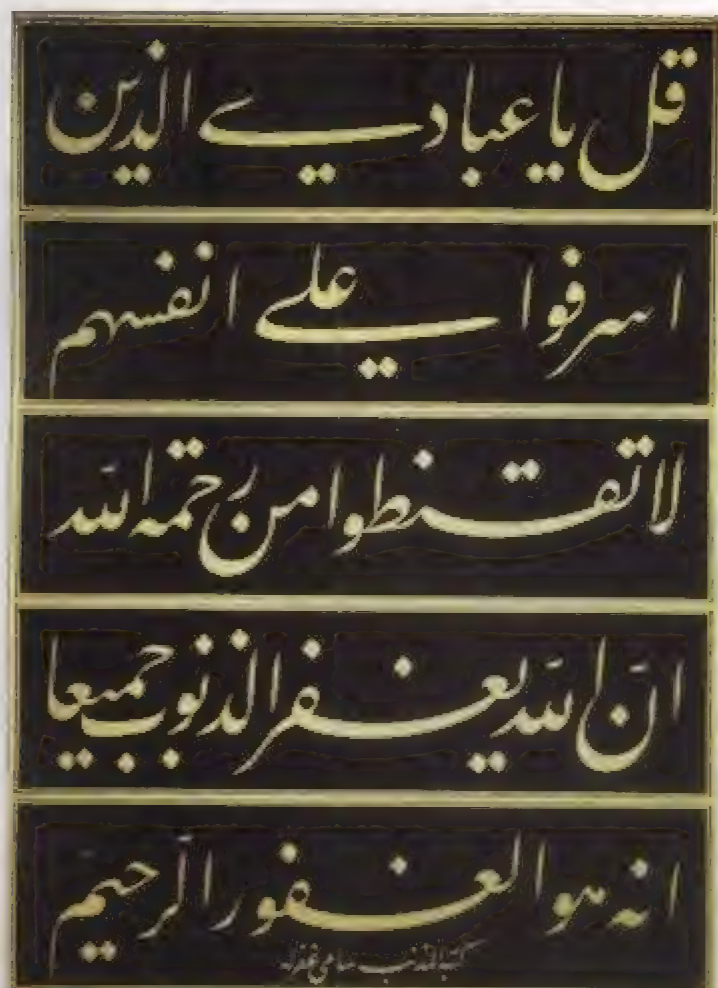 قل يا عبادي الذين
اسرفوا علي انفسهم
لا تقنطوا من رحمة الله
انّ الله يغفر الذنوب جميعا
انه هو الغفور الرحيم
كتبه المذنب سامي غفرله